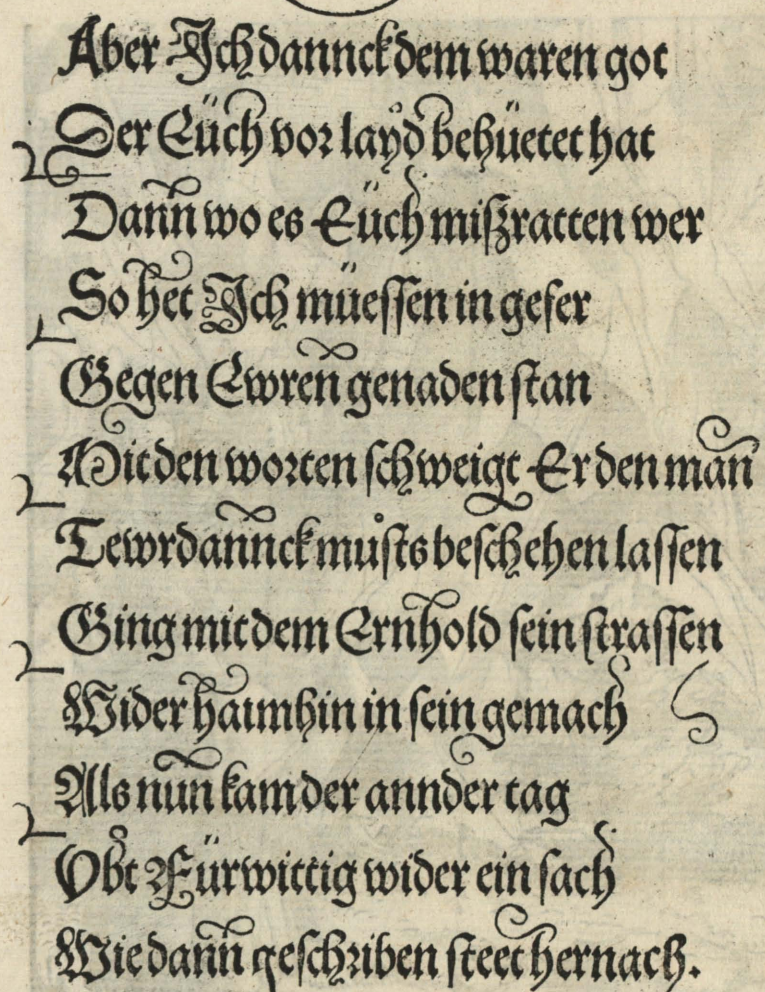 Aber Ich dannck dem waren got
Der Eüch vor layd behüetet hat
Dann wo es Eüch miſzratten wer
So het Ich müeſſen in gefer
Gegen Ewren genaden ſtan
Mit den worten ſchweigt Er den man
Tewrdannck muͦſts beſchehen laſſen
Ging mit dem Ernhold ſein ſtraſſen
Wider haimhin in ſein gemach
Als nun kam der annder tag
Obt Fürwittig wider ein ſach
Wie dann geſchriben ſteet hernach.